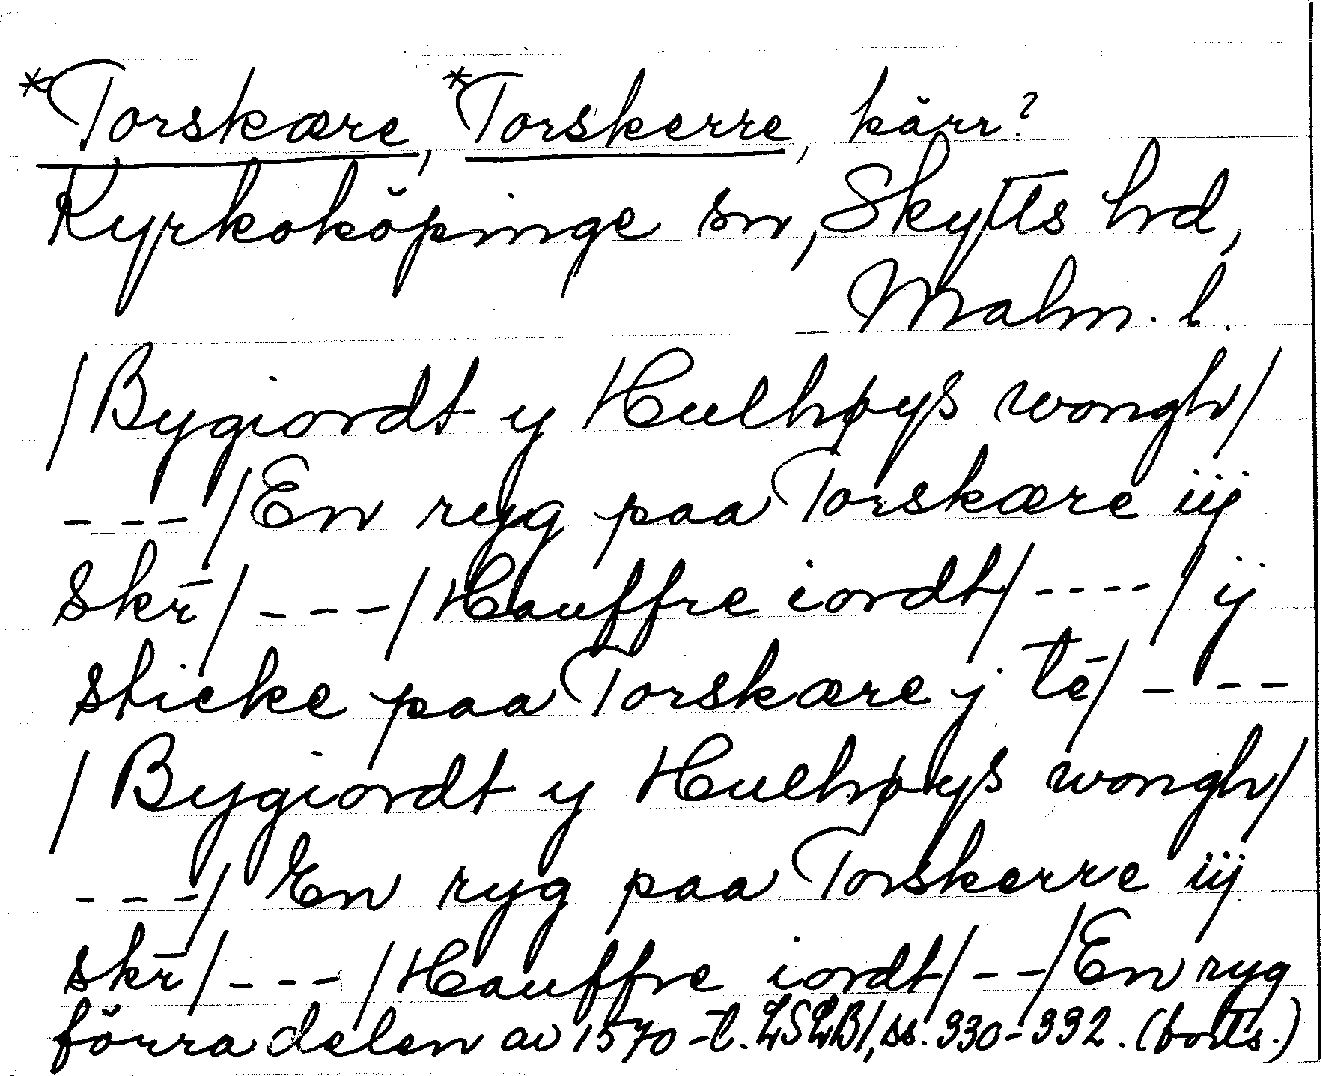 *Torskære, *Torskerre, kärr?
Kyrkoköpinge sn, Skytts hd,
Malm. l.
/Bygiordt y Hulhøys wongh/
---/En ryg paa Torskære iij
skr̄/---/Hauffre iordt/----/ij
sticke paa Torskære j tē/---
/Bygiordt y Hulhøys wongh/
---/En ryg paa Torskerre iij
skr̄/---/Hauffre iordt/--/En ryg
förra delen av 1570-t. LSLB1, ss. 330-332. (forts.)